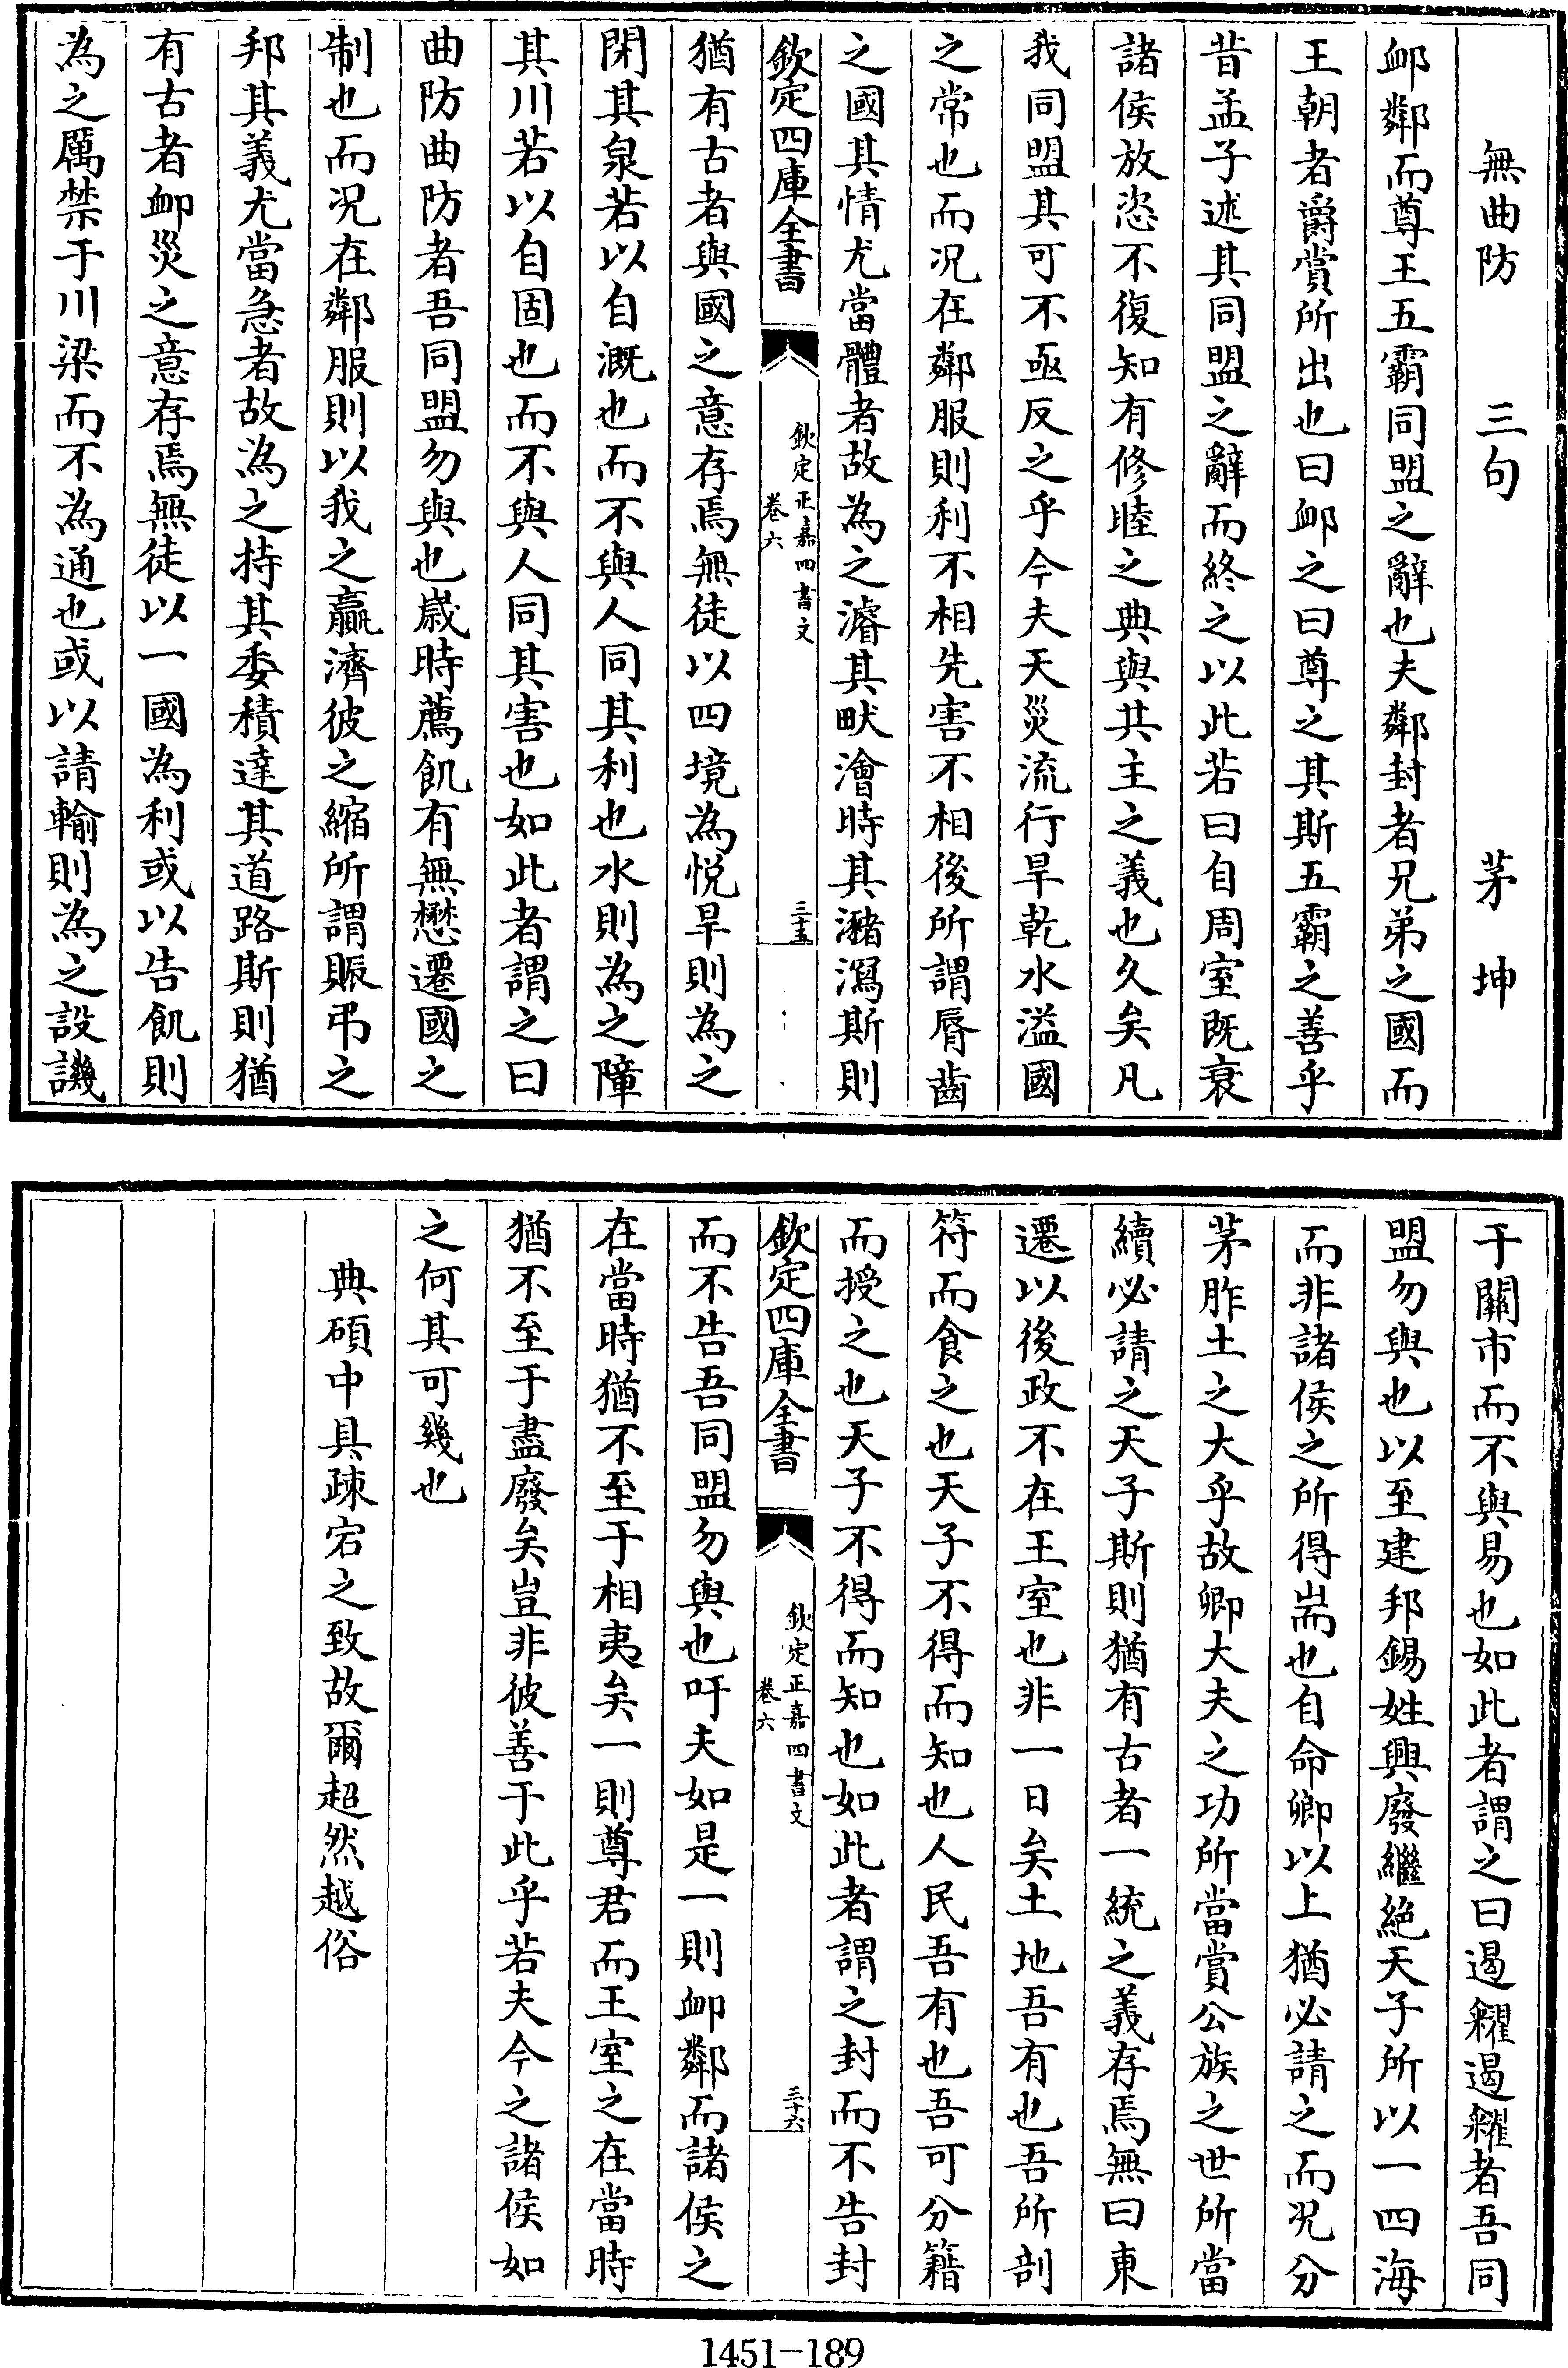 無曲防　三句　茅坤
卹鄰而尊王五霸同盟之辭也夫鄰封者兄弟之國而
王朝者爵賞所出也曰卹之曰尊之其斯五霸之善乎
昔孟子述其同盟之辭而終之以此若曰自周室既衰
諸侯放恣不復知有修睦之典與共主之義也久矣凡
我同盟其可不亟反之乎今夫天災流行旱乾水溢國
之常也而况在鄰服則利不相先害不相後所謂脣齒
之國其情尤當體者故為之濬其畎澮時其瀦瀉斯則
欽定四庫全書
欽定正嘉四書文
卷六
三十五
猶有古者與國之意存焉無徒以四境為悅旱則為之
閉其泉若以自溉也而不與人同其利也水則為之障
其川若以自固也而不與人同其害也如此者謂之曰
曲防曲防者吾同盟勿與也歲時薦飢有無懋遷國之
制也而况在鄰服則以我之贏濟彼之縮所謂賑弔之
邦其義尤當急者故為之持其委積達其道路斯則猶
有古者卹災之意存焉無徒以一國為利或以告飢則
為之厲禁于川梁而不為通也或以請輸則為之設譏
于關市而不與易也如此者謂之曰遏糴遏糴者吾同
盟勿與也以至建邦錫姓興廢繼絕天子所以一四海
而非諸侯之所得耑也自命卿以上猶必請之而况分
茅胙土之大乎故卿大夫之功所當賞公族之世所當
續必請之天子斯則猶有古者一統之義存焉無曰東
遷以後政不在王室也非一日矣土地吾有也吾所剖
符而食之也天子不得而知也人民吾有也吾可分籍
而授之也天子不得而知也如此者謂之封而不告封
欽定四庫全書
欽定正嘉四書文
卷六
三十六
而不告吾同盟勿與也吁夫如是一則卹鄰而諸侯之
在當時猶不至于相夷矣一則尊君而王室之在當時
猶不至于盡廢矣豈非彼善于此乎若夫今之諸侯如
之何其可幾也
典碩中具疎宕之致故爾超然越俗
1451-189